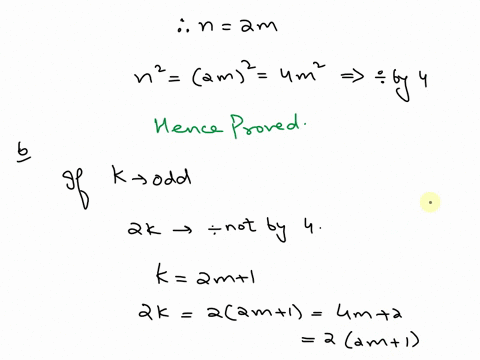 ∴ n = 2m
n² = (2m)² = 4m² ⇒ ÷ by 4
Hence Proved.
b
If k → odd
2k → ÷ not by 4.
k = 2m+1
2k = 2(2m+1) = 4m+2
= 2(2m+1)